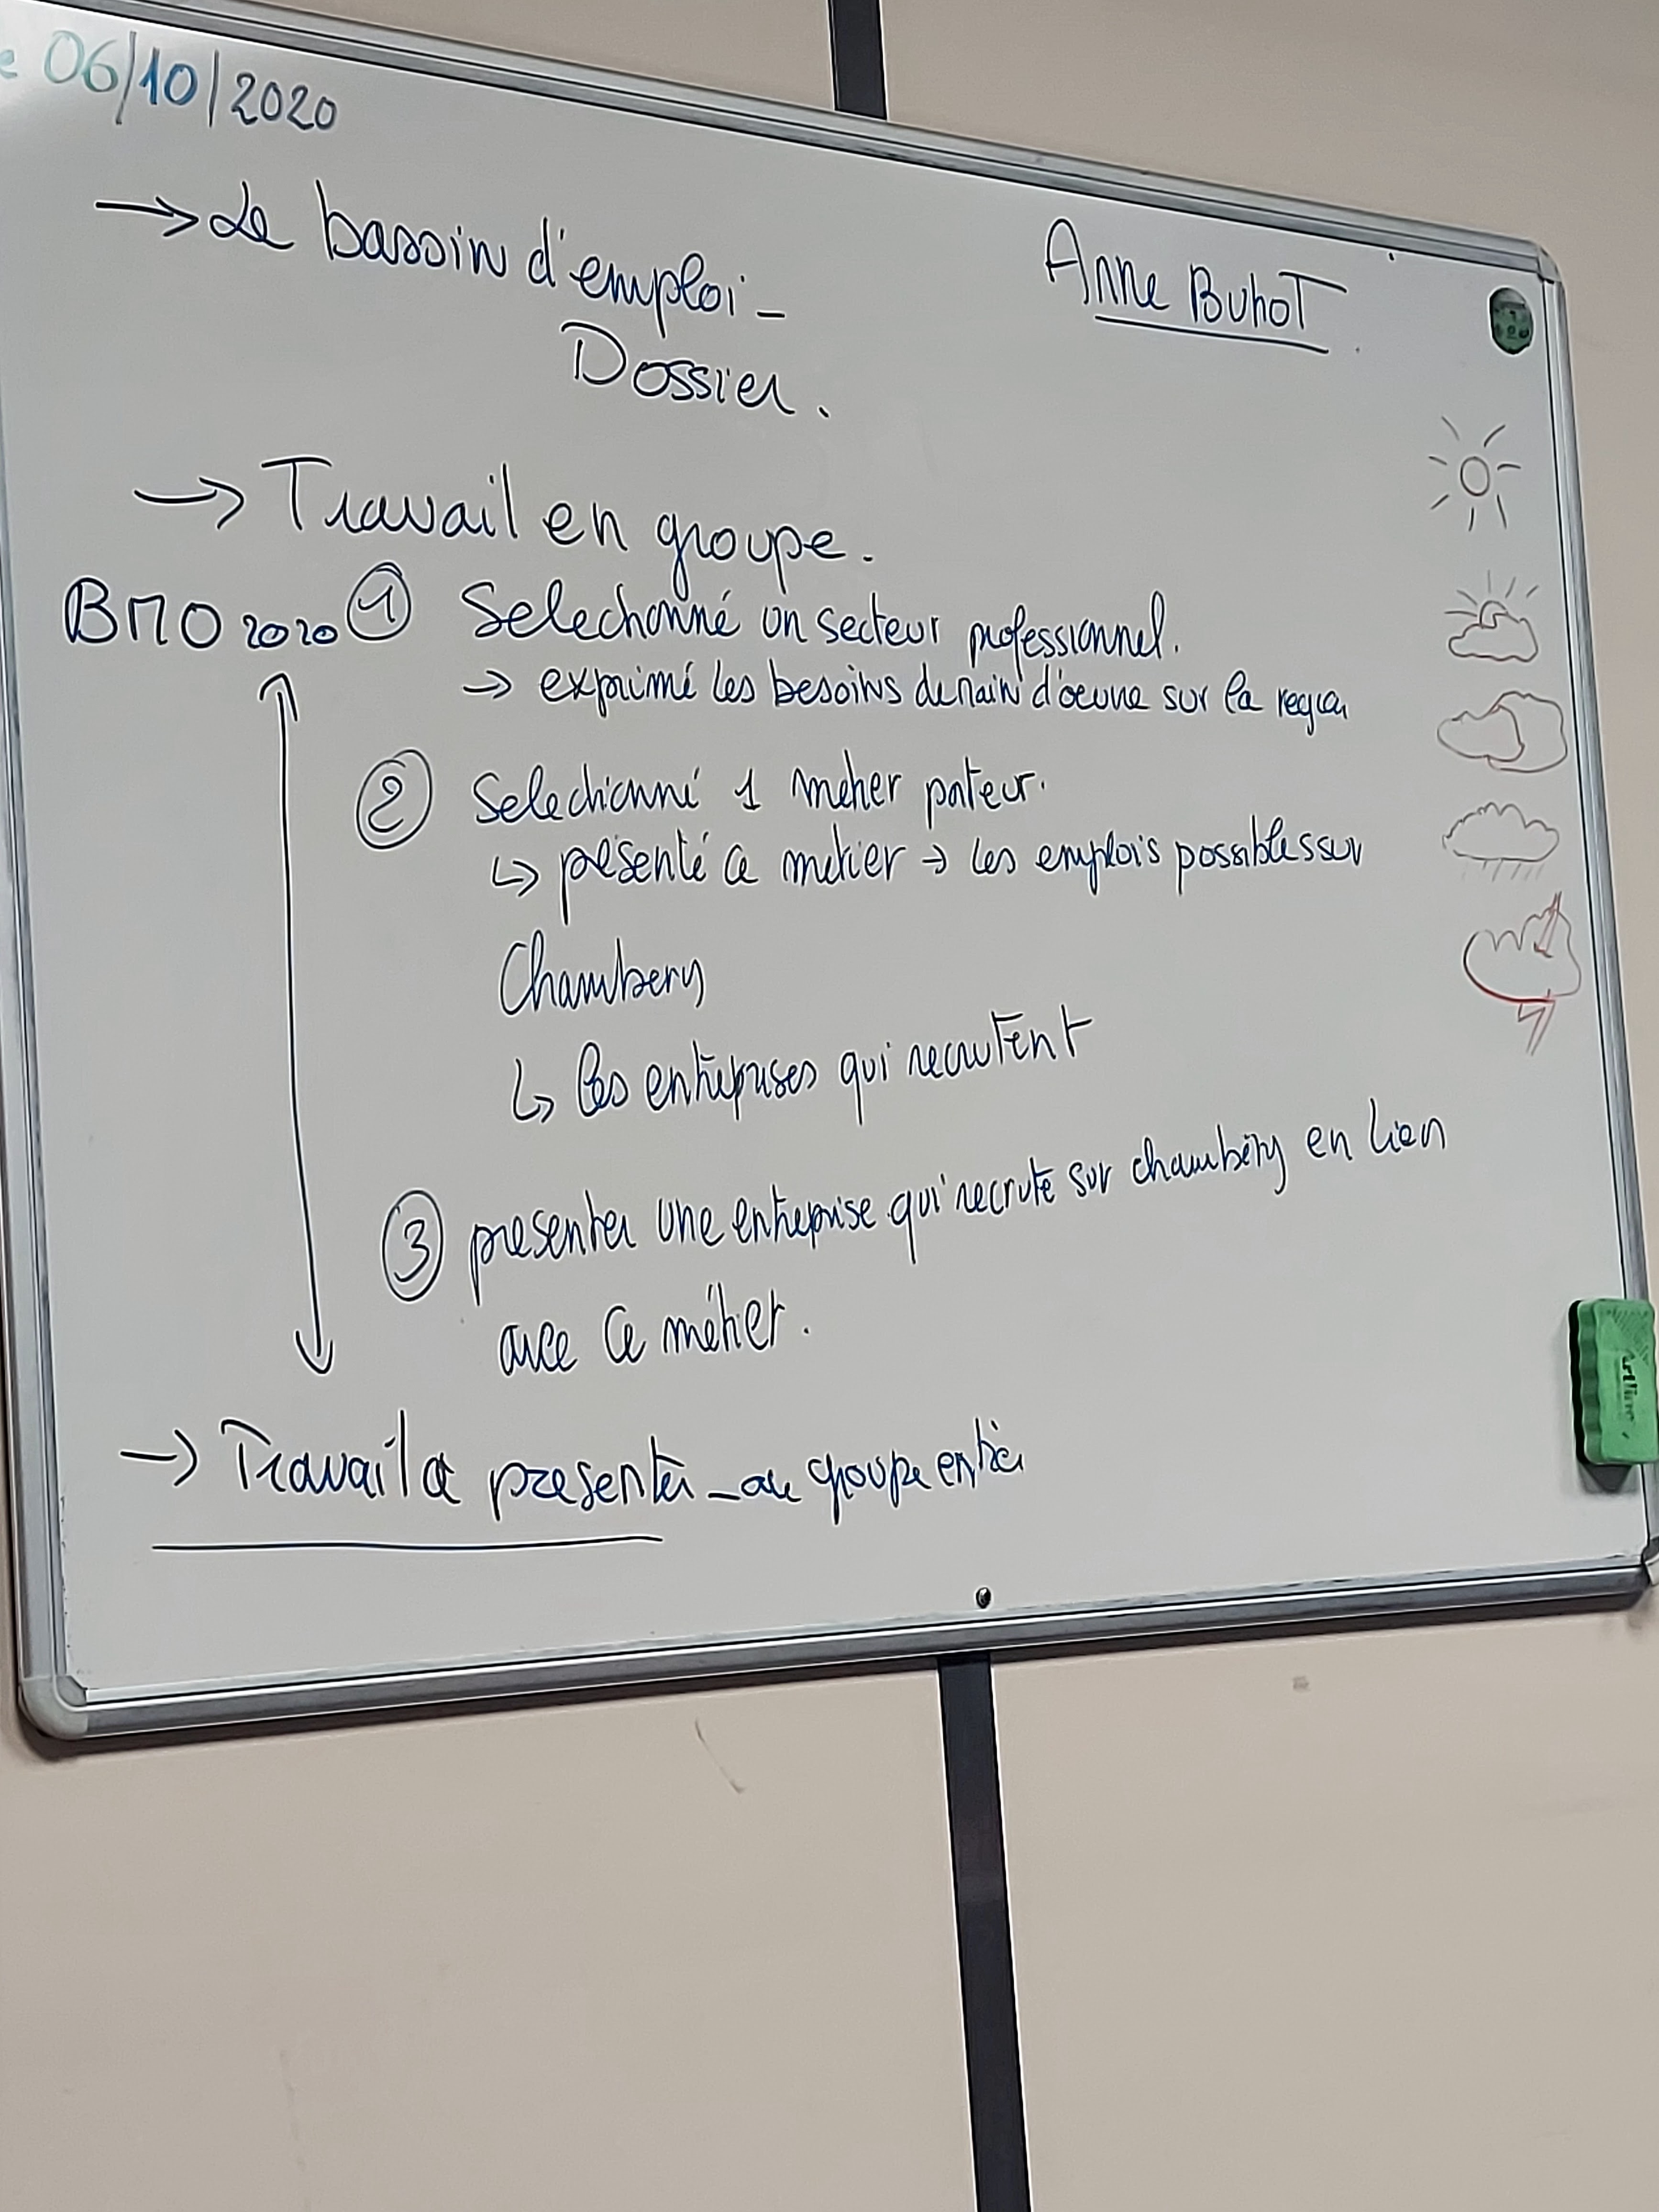 e 06/10/2020
→ Le bassin d'emploi -
Anne BuhoT
Dossier.
→ Travail en groupe.
BMO 2020 ① Selectionné un secteur professionnel.
→ exprimé les besoins de main d'oeuvre sur la region
② Selectionné 1 metier porteur.
↳ présenté ce metier → les emplois possibles sur
Chambery
↳ les entreprises qui recrutent
③ presenter une entreprise qui recrute sur chambéry en lien
avec ce métier.
→ Travail a presenter - au groupe entier
Artline